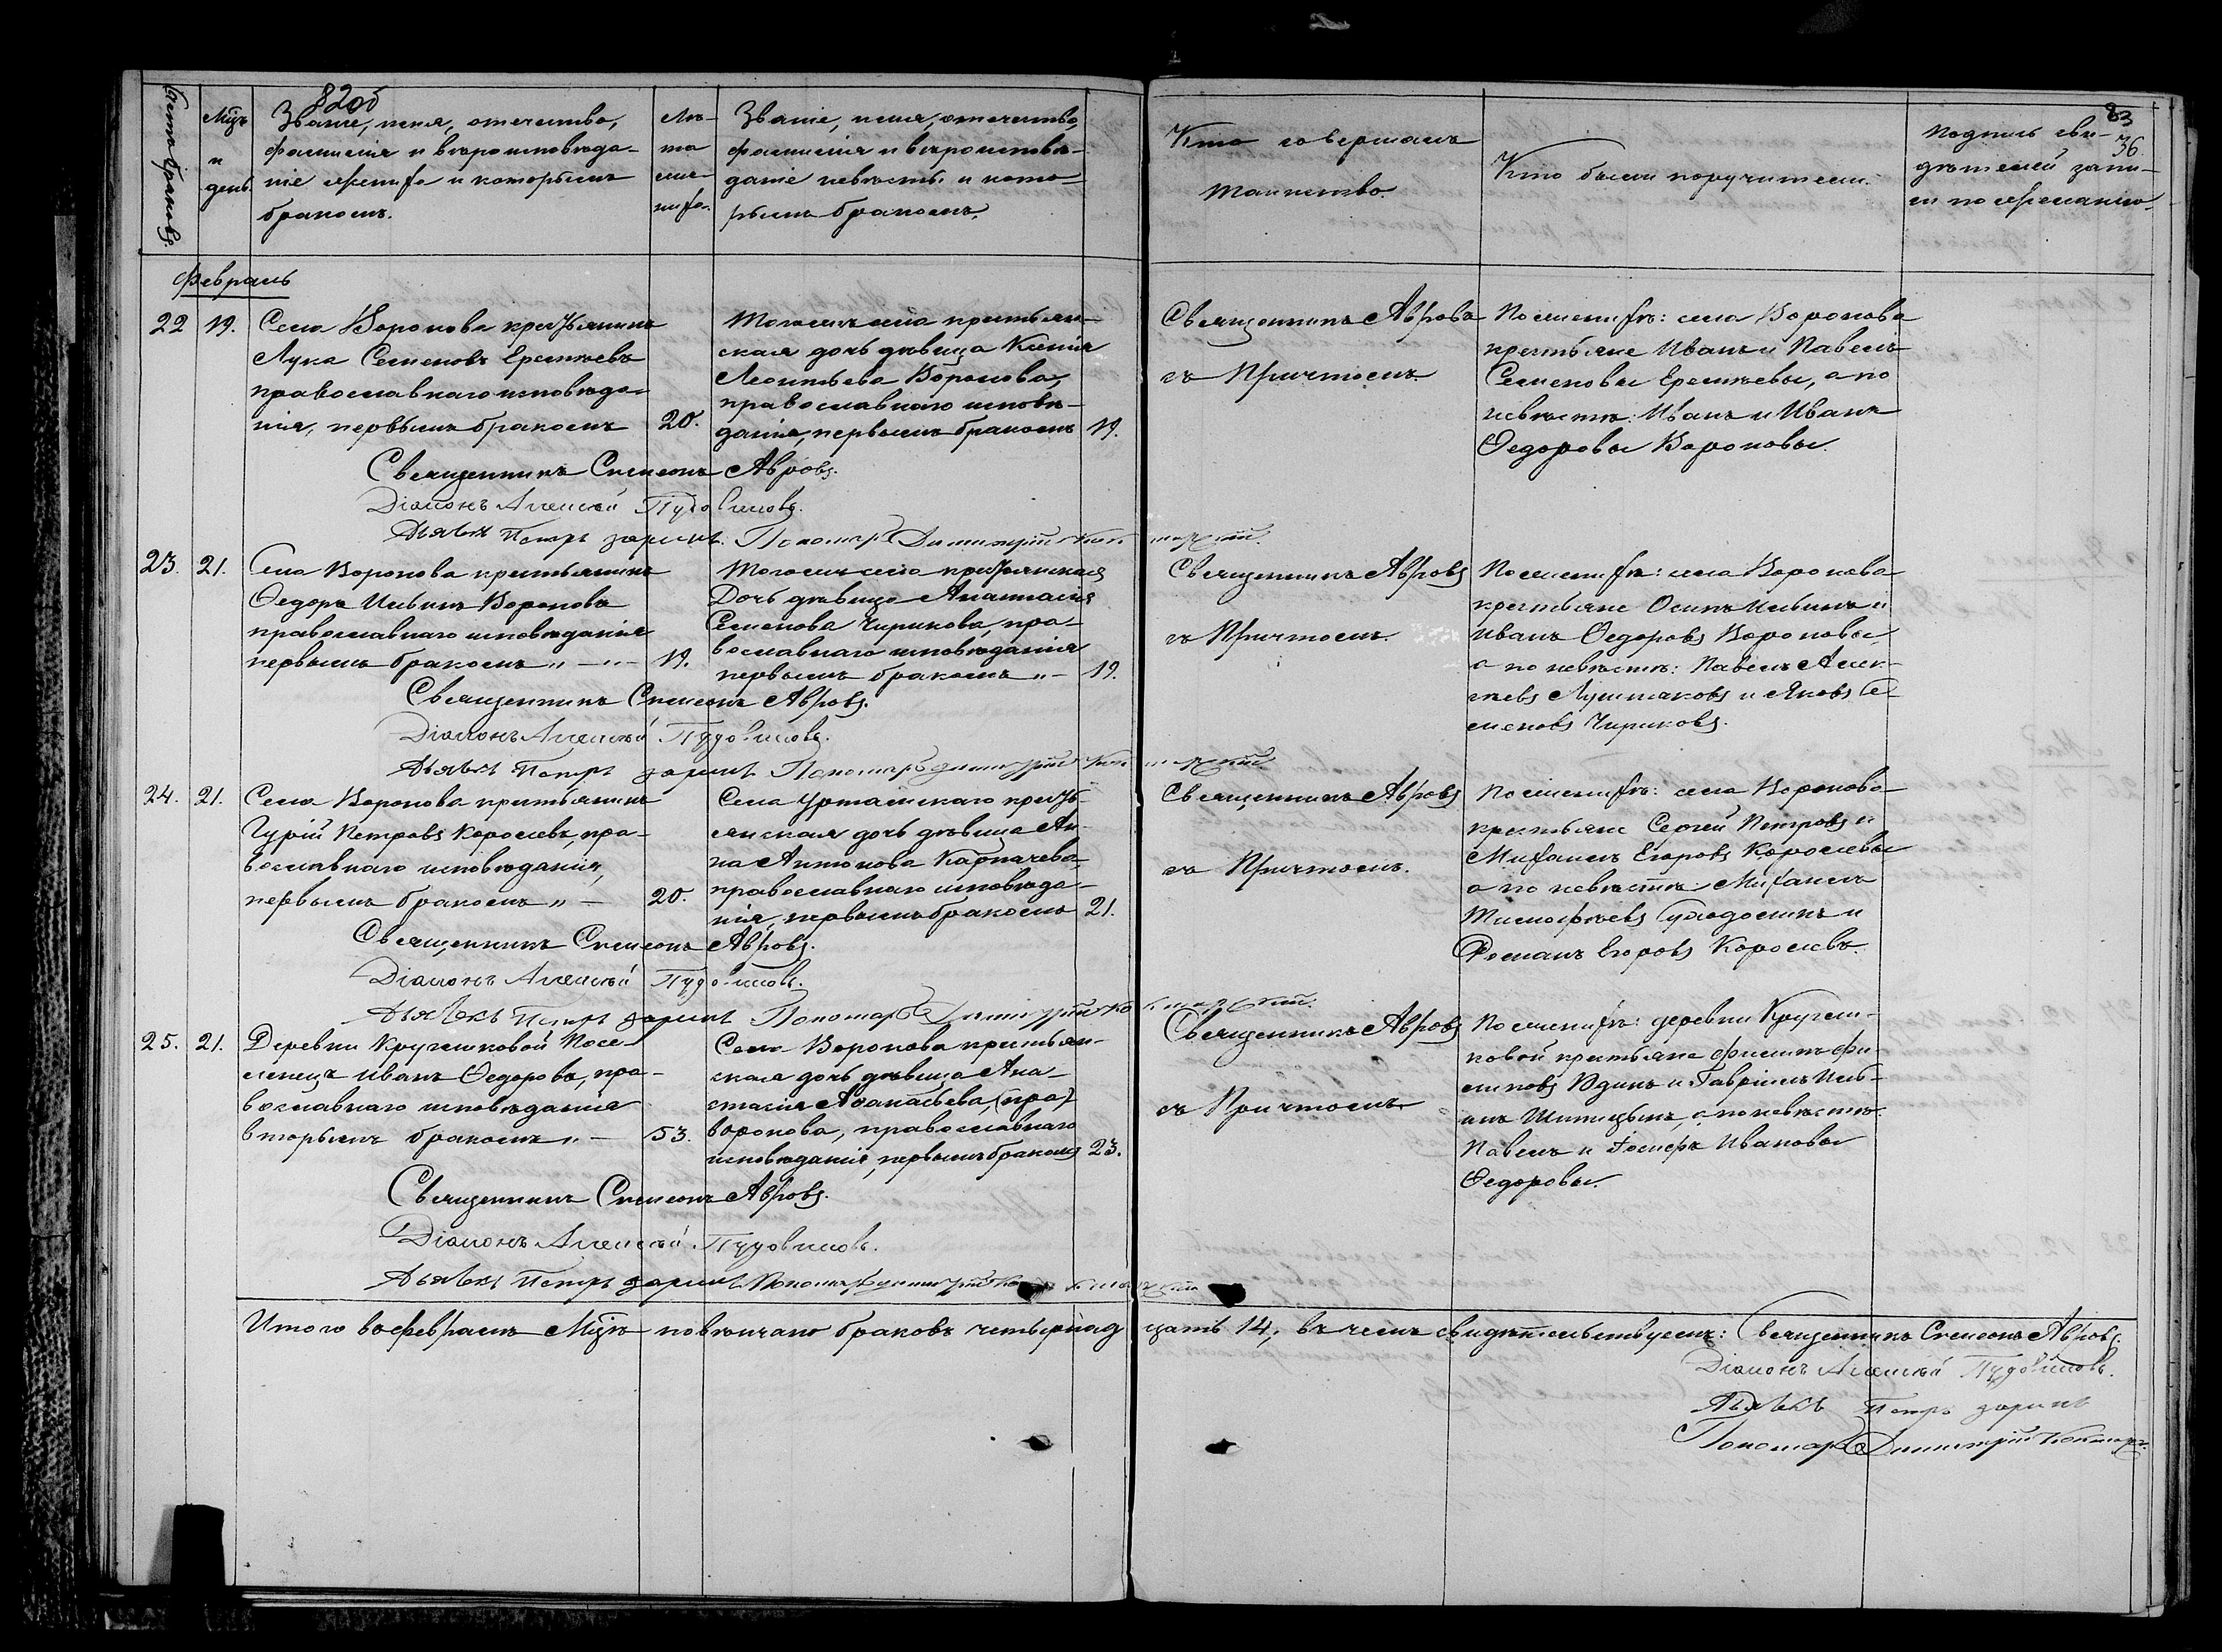 82об
Счетъ браковъ.
Мцъ
и
день
Званіе, имя, отчество,
фамилія и вѣроисповѣда-
ніе жениха и которымъ
бракомъ.
Лѣ-
та
жени-
ха.
Званіе, имя, отчество,
фамилія и вѣроисповѣ-
даніе невѣсты и кото-
рымъ бракомъ.
Кто совершалъ
таинство.
Кто были поручители.
83
36
Подпись сви-
дѣтелей запи-
си по желанію.
Февраль
22
19.
Села Воронова крестьянинъ
Лука Семеновъ Еремѣевъ
православнаго исповѣда-
нія, первымъ бракомъ
20.
Тогожъ села крестьян-
ская дочь дѣвица Ксенія
Леонтьева Воронова,
православнаго исповѣ-
данія, первымъ бракомъ
19.
Священникъ Авровъ
съ Причтомъ.
По женихѣ: села Воронова
крестьяне Иванъ и Павелъ
Семеновы Еремѣевы, а по
невѣстѣ: Иванъ и Иванъ
Ѳедоровы Вороновы.
Священникъ Симеонъ Авровъ.
Діаконъ Алексѣй Пудовиковъ.
Дьячекъ Петръ Заринъ. Пономарь Димитрій
23.
21.
Села Воронова крестьянинъ
Ѳедоръ Ильинъ Вороновъ
православнаго исповѣданія
первымъ бракомъ „ — „ —
19.
Тогожъ села крестьянская
Дочь дѣвица Анастасія
Семенова Чирикова, пра-
вославнаго исповѣданія
первымъ бракомъ „ —
19.
Священникъ Авровъ
съ Причтомъ.
По женихѣ: села Воронова
крестьяне Осипъ Ильинъ и
Иванъ Ѳедоровъ Вороновы
а по невѣстѣ: Павелъ Алек-
сѣевъ Лушниковъ и Яковъ Се-
меновъ Чириковъ.
Священникъ Симеонъ Авровъ.
Діаконъ Алексѣй Пудовиковъ.
Дьячекъ Петръ Заринъ. Пономарь Димитрій
24.
21.
Села Воронова крестьянинъ
Гурій Петровъ Королевъ, пра-
вославнаго исповѣданія,
первымъ бракомъ „ —
20.
Села Уртамскаго кресть-
янская дочь дѣвица Ан-
на Антонова Карпачева,
православнаго исповѣда-
нія, первымъ бракомъ
21.
Священникъ Авровъ
съ Причтомъ.
По женихѣ: села Воронова
крестьяне Сергей Петровъ и
Михаилъ Егоровъ Королевы
а по невѣстѣ: Михаилъ
Тимофѣевъ и
Романъ Егоровъ Королевъ.
Священникъ Симеонъ Авровъ.
Діаконъ Алексѣй Пудовиковъ.
Дьячекъ Петръ Заринъ. Пономарь Димитрій
25.
21.
Деревни Кругликовой Посе-
ленецъ Иванъ Ѳедоровъ, пра-
вославнаго исповѣданія
вторымъ бракомъ „ —
53.
Села Воронова крестьян-
ская дочь дѣвица Ана-
стасія Аѳанасьева, (пра)
Воронова, православнаго
исповѣданія, первымъ бракомъ
23.
Священникъ Авровъ
съ Причтомъ
По женихѣ: деревни Кругли-
ковой крестьяне Филипъ Фи-
липовъ Юдинъ и Гавріилъ Иль-
инъ Шипицынъ, а по невѣстѣ
Павелъ и Іосифъ Ивановы
Ѳедоровы.
Священникъ Симеонъ Авровъ.
Діаконъ Алексѣй Пудовиковъ.
Дьячекъ Петръ Заринъ. Пономарь Димитрій
Итого въ февралѣ Мцѣ повѣнчано браковъ четырнадцать 14, въ чемъ свидѣтельствуемъ: Священникъ Симеонъ Авровъ.
Діаконъ Алексѣй Пудовиковъ.
Дьячекъ Петръ Заринъ
Пономарь Димитрій